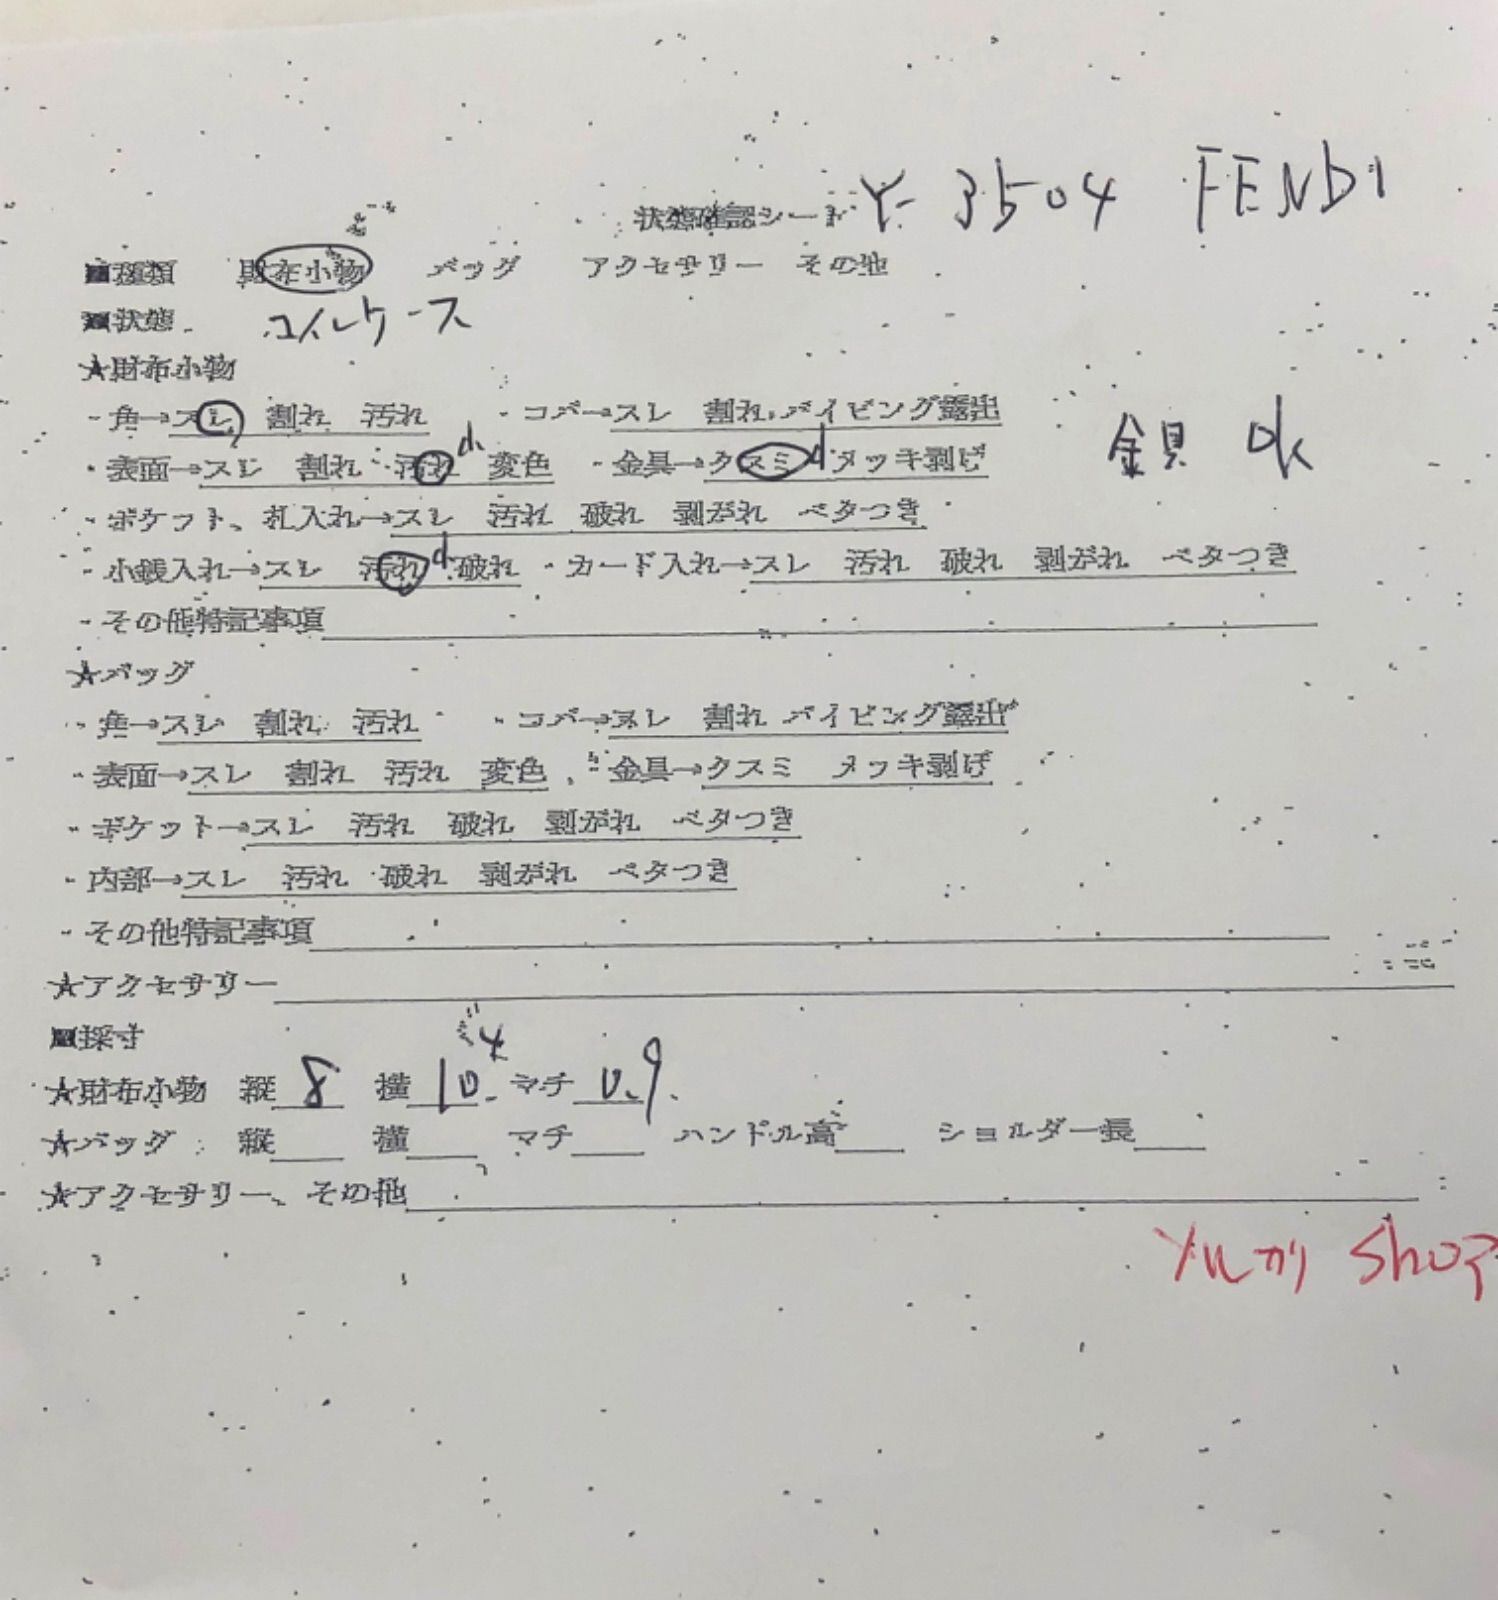 状態確認シート Y-3504 FENDI
■種類 財布小物 バッグ アクセサリー その他
■状態 コインケース
★財布小物
・角→スレ 割れ 汚れ ・コバ→スレ 割れ パイピング露出
金具 ok
・表面→スレ 割れ 汚れ 変色 ・金具→クスミ メッキ剥げ
・ポケット、札入れ→スレ 汚れ 破れ 剥がれ ベタつき
・小銭入れ→スレ 汚れ 破れ ・カード入れ→スレ 汚れ 破れ 剥がれ ベタつき
・その他特記事項
★バッグ
・角→スレ 割れ 汚れ ・コバ→スレ 割れ パイピング露出
・表面→スレ 割れ 汚れ 変色 ・金具→クスミ メッキ剥げ
・ポケット→スレ 汚れ 破れ 剥がれ ベタつき
・内部→スレ 汚れ 破れ 剥がれ ベタつき
・その他特記事項
★アクセサリー
■採寸
★財布小物 縦 8 横 10.4 マチ 0.9
★バッグ 縦 横 マチ ハンドル高 ショルダー長
★アクセサリー、その他
SHOP